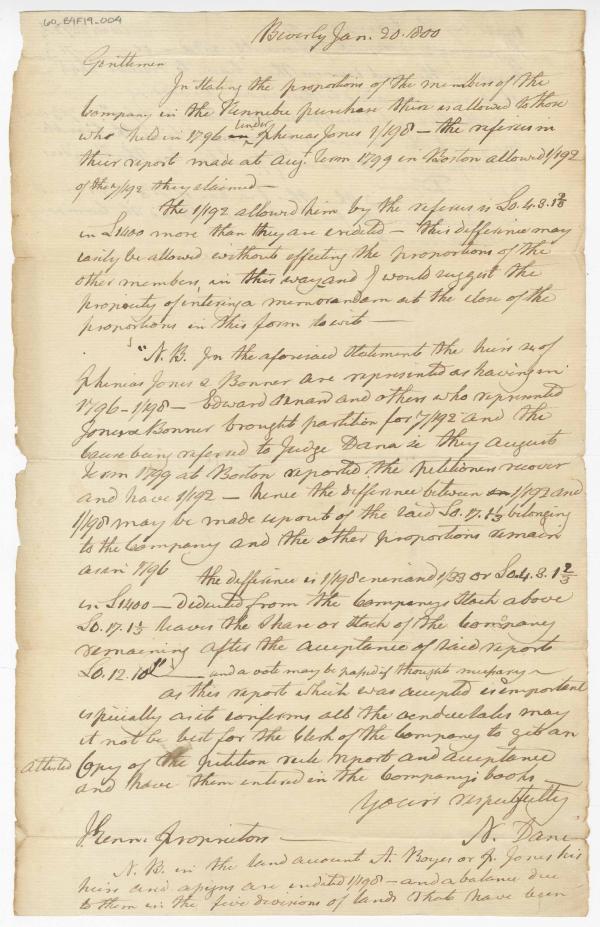 60_E4F19_004
Beverly Jan. 20. 1800
Gentlemen
In stating the proportions of the members of the
Company in the Kennebec purchase there is allowed to those
who held in 1796 under Phineas Jones 1/198 – the referees in
their report made at Aug. Term 1799 in Boston allowed 1/192
of the 7/192 they claimed –
the 1/192 allowed him by the referees is £0. 4. 3.
in £1400 more than they are credited – this difference may
easily be allowed without effecting the proportions of the
other members, in this way and I would suggest the
propriety of entering a memorandum at the close of the
proportions in this form to wit –
"N. B. In the aforesaid Statements the heirs &c of
Phineas Jones & Bonner are represented as having in
1796 – 1/198 – Edward and others who represented
Jones & Bonner brought partition for 7/192 and the
Cause being referred to Judge Dana &c they August
Term 1799 at Boston reported the petitioners recover
and have 1/192 – hence the difference between 1/192 and
1/198 may be made up out of the said £0. 17. 1⅓ belonging
to the Company and the other proportions remain
as in 1796
the difference is 1/198 and 1/33 or £0. 4. 3. 1⅔
in £1400 – Deducted from the Companys Stock above
£0. 17. 1⅓ leaves the Share or Stock of the Company
remaining after the acceptance of said report
£0. 12. 10" – and a vote may be passed if thought necessary –
as this report which was accepted is important
especially as it conforms all the may
it not be best for the Clerk of the Company to get an
attested Copy of the petition rule report and acceptance
and have them entered in the Company's books
Yours respectfully
N. Dane
Kenn. Proprietors –
N. B. in the land account A. Boyes or P. Jones his
heirs and assigns are credited 1/198 – and a balance due
to them in the five divisions of lands that have been